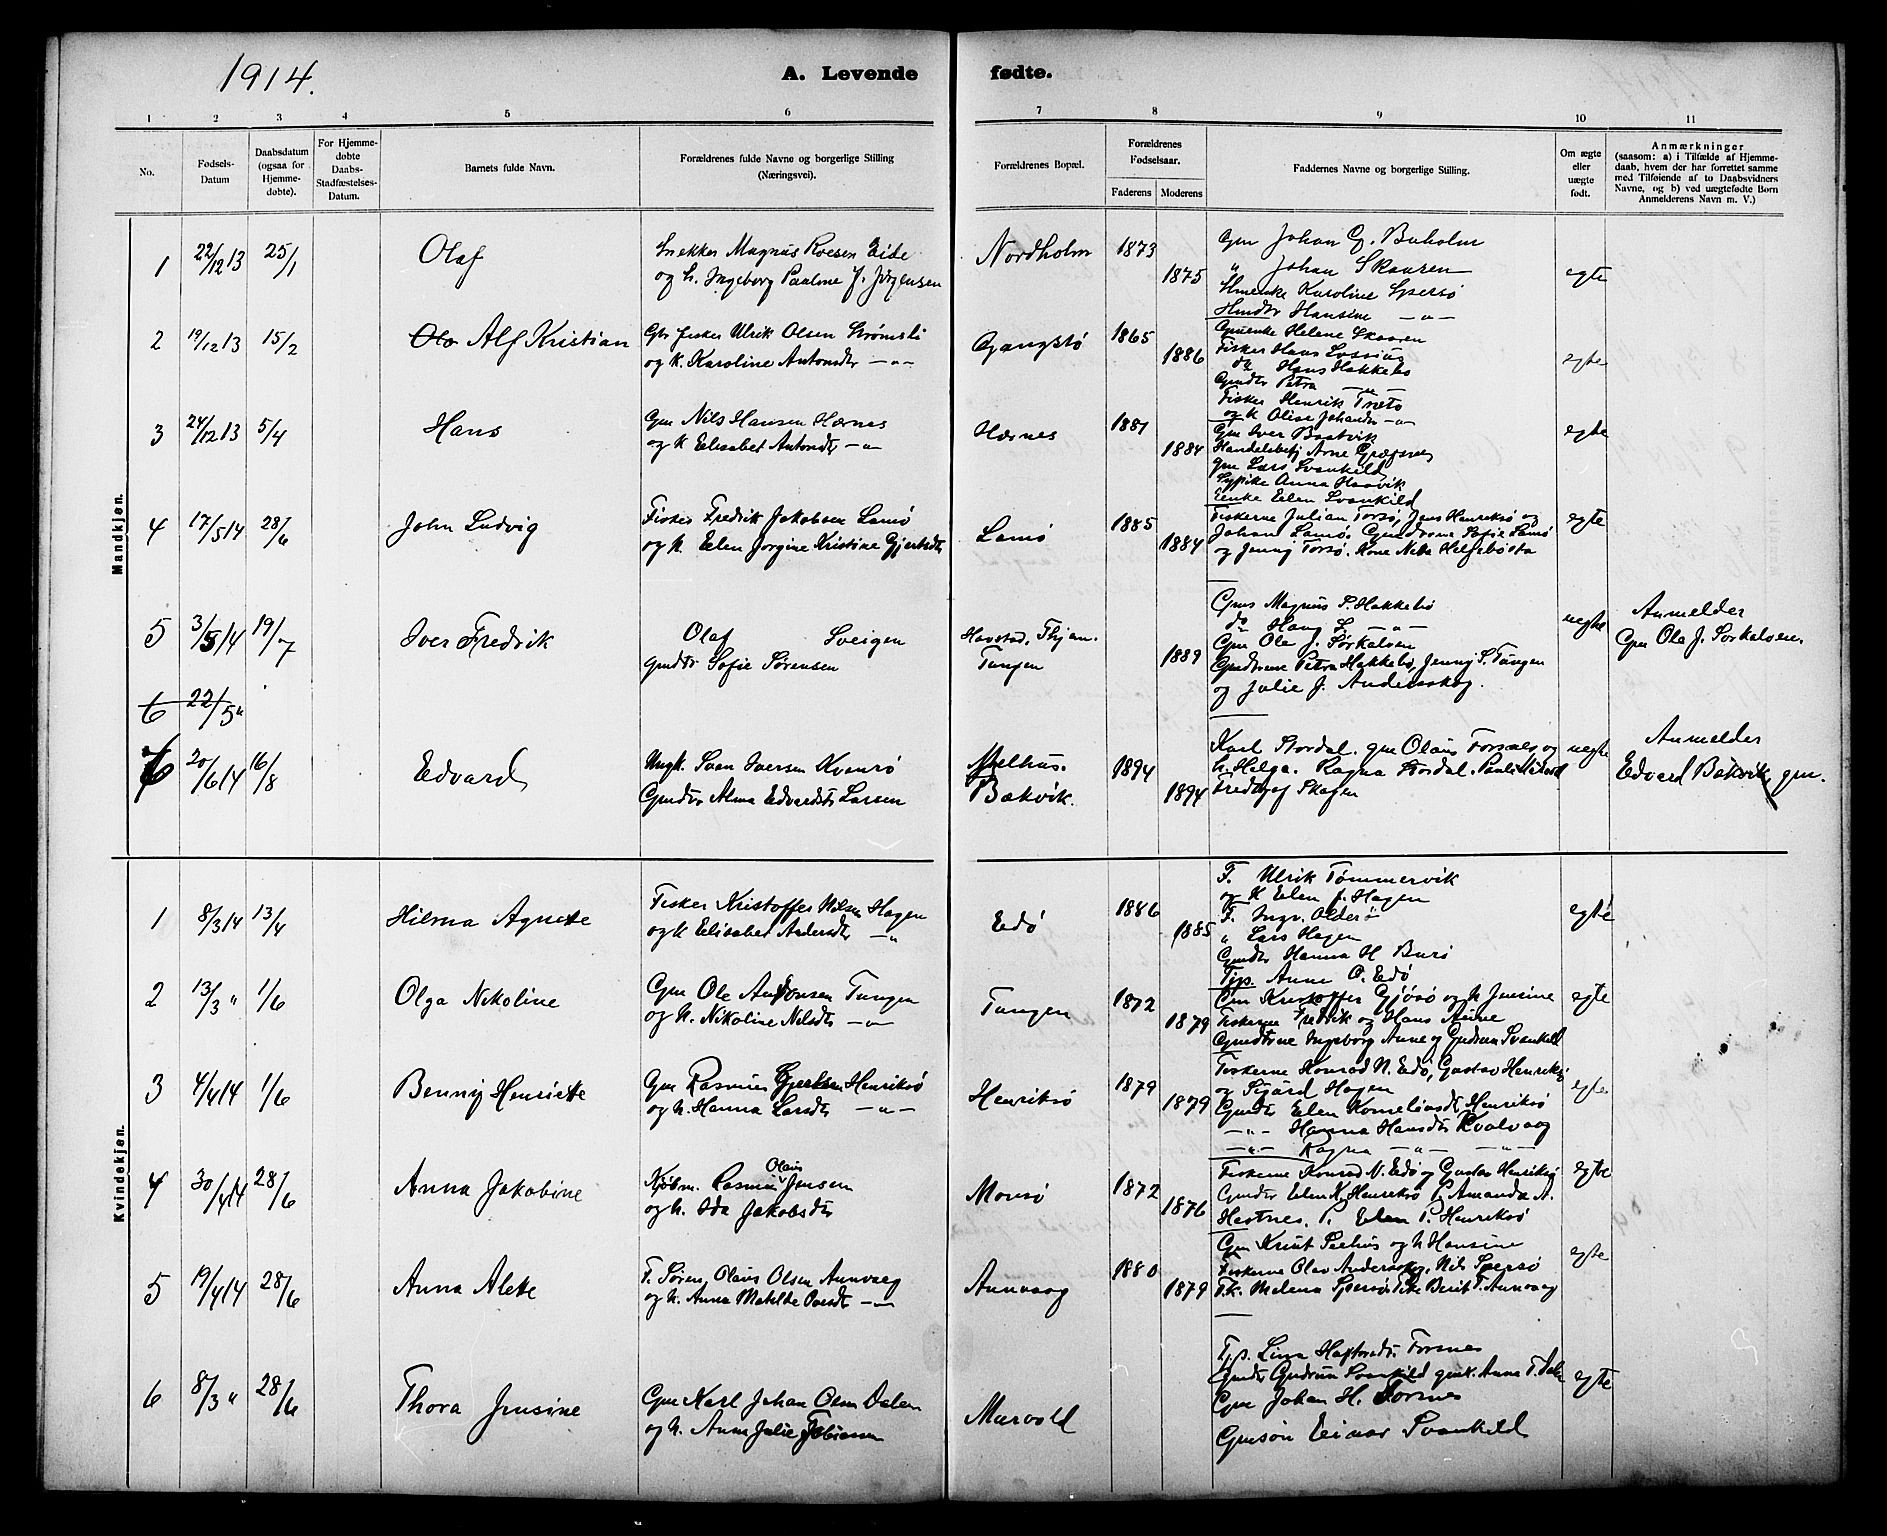 1914.
A. Levende fødte.
1 2 3 4 5 6 7 8 9 10 11
No.
Fødsels-
Datum
Daabsdatum
(ogsaa for
Hjemme-
døbte).
For Hjemme-
døbte
Daabs-
Stadfæstelses-
Datum.
Barnets fulde Navn.
Forældrenes fulde Navne og borgerlige Stilling
(Næringsvei).
Forældrenes Bopæl.
Forældrenes
Fødselsaar.
Faderens Moderens
Faddernes Navne og borgerlige Stilling.
Om ægte
eller
uægte
født.
Anmærkninger
(saasom: a) i Tilfælde af Hjemme-
daab, hvem der har forrettet samme
med Tilføiende af to Daabsvidners
Navne, og b) ved uægtefødte Børn
Anmelderens Navn m. V.)
Mandkjøn.
1 22/12 13 25/1 Olaf
Snekker Magnus Roesen Eide
og h. Ingeborg Pauline J. Jörgensen
Nordholm 1873 1875
Gm Johan G. Buholm
" Johan Skaaren
Karoline Spersø
Hansine -"-
egte
2 19/12 13 15/2 Alf Kristian
Gbr fisker Ulrik Olsen Strømsli
og k. Karoline Antonsdtr -"-
Gangstø 1865 1886
Helene Skaaren
Fisker Hans Lossius
do Hans Hakkebo
Gmdtr Petra -"-
egte
3 24/12 13 5/4 Hans
Gm Nils Hansen Hærnes
og k Elisabet Antonsdtr -"-
Hærnes 1881 1884
Fisker Henrik Træto
og k Olise Johansdr -"-
Gm Iver Baatvik
Handelsbetj Arne
gm Lars Svankild
Sypike Anna Haavik
Enke Elen Svankild
egte
4 17/5 14 28/6 John Ludvig
Fisker Fredrik Jakobsen Lamø
og k. Elen Jorgine Kristine Gjertsdtr
Lamø 1885 1884
Fiskerne Julian Torsø, Jens Henriksø og
Johan Lamø. Gmdtrene Sofie Lamø
og Jenny Torsø. Kone Neta
egte
5 3/5 14 19/7 Iver Fredrik
Olaf Sveigen
gmdtr Sofie Sørensen
Havstad, Thjøm.
Tangen
1889
Gm Magnus P. Hakkebø
do Hans L -"-
Gm Ole J. Sørkalsen
Gmdtrene Petra Hakkebo, Jenny S. Tangen
og Julie J. Anderskog.
uegte
Anmelder
Gm Ole J. Sorkalsen.
6 22/5 "
6 20/6 14 16/8 Edvard
Ungk. Sven Iversen Kvenrø
Gmdtr Alma Edvardsdtr Larsen
Melhus.
Bækvik.
1894 1894
Karl Stordal. gm Olaus Forsnes og
h. Helga. Ragna Stordal.
Fredrik af Skagen
uegte
Anmelder
Edvard Bækvik gm.
Kvindekjøn.
1 8/3 14 13/4 Hilma Agnette
Fisker Kristoffer Nilsen Hagen
og k Elisabet Andersdtr -"-
Edø 1886 1885
F. Ulrik Tømmervik
og K Elen J. Hagen
F. Ingv. Olderø
" Lars Hagen
Gmdtr Hanna H Burø
Tjp. Anne O. Edø
egte
2 13/3 " 1/6 Olga Nikoline
Gm Ole Andersen Tangen
og h. Nikoline Nilsdtr -"-
Tangen 1872 1879
Gm Kristoffer Gjøsø og h Jensine
Fiskerne Fredrik og Hans Aune
Gmdtrene Ingeborg Anne og Gudrun Svankild
egte
3 4/4 14 1/6 Benny Henriette
Gm Rasmus Gjertsen Henriksø
og h. Hanna Larsdtr -"-
Henriksø 1879 1879
Fiskerne Konrad N. Edø, Gustav Henriksø
og Sigurd Hagen
Gmdtr Elen Korneliusdtr Henriksø
-"- Hanna Hansdtr Kvalvaag
-"- Ragna -"- -"-
egte
4 30/4 14 28/6 Anna Jakobine
Kjøbm. Rasmus Olaus Jensen
og h. Ida Jakobsdtr
Morsø 1872 1876
Fiskerne Konrad N. Edø og Gustav Henriksø
Gmdtr Elen K. Henriksø P. Amanda A.
Hestnes. P. Elen P. Henriksø
egte
5 19/4 14 28/6 Anna Alette
F. Søren Olaus Olsen Aunvaag
og h. Anna Matilde -"-
Aunvaag 1880 1879
Gm Knut Peehus og h Hansine
Fiskerne Olav Anderskog, Nils Spersø
F.k. Melena Spersø, Pike Berit F. Aunvaag
egte
6 8/3 " 28/6 Thora Jensine
Gm Karl Johan Olsen Dalen
og h. Anne Julie Tobiasen
Marvold
Tjp. Lina Haftorsdtr Forsnes
Gmdtr Gudrun Svankild gmk. Anne T. Dalen
Gm Johan H. Forsnes
Gmsøn Einar Svankild
egte